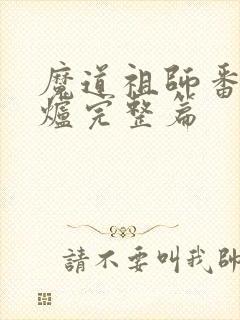 魔道祖師番
爐完整篇
請不要叫我師